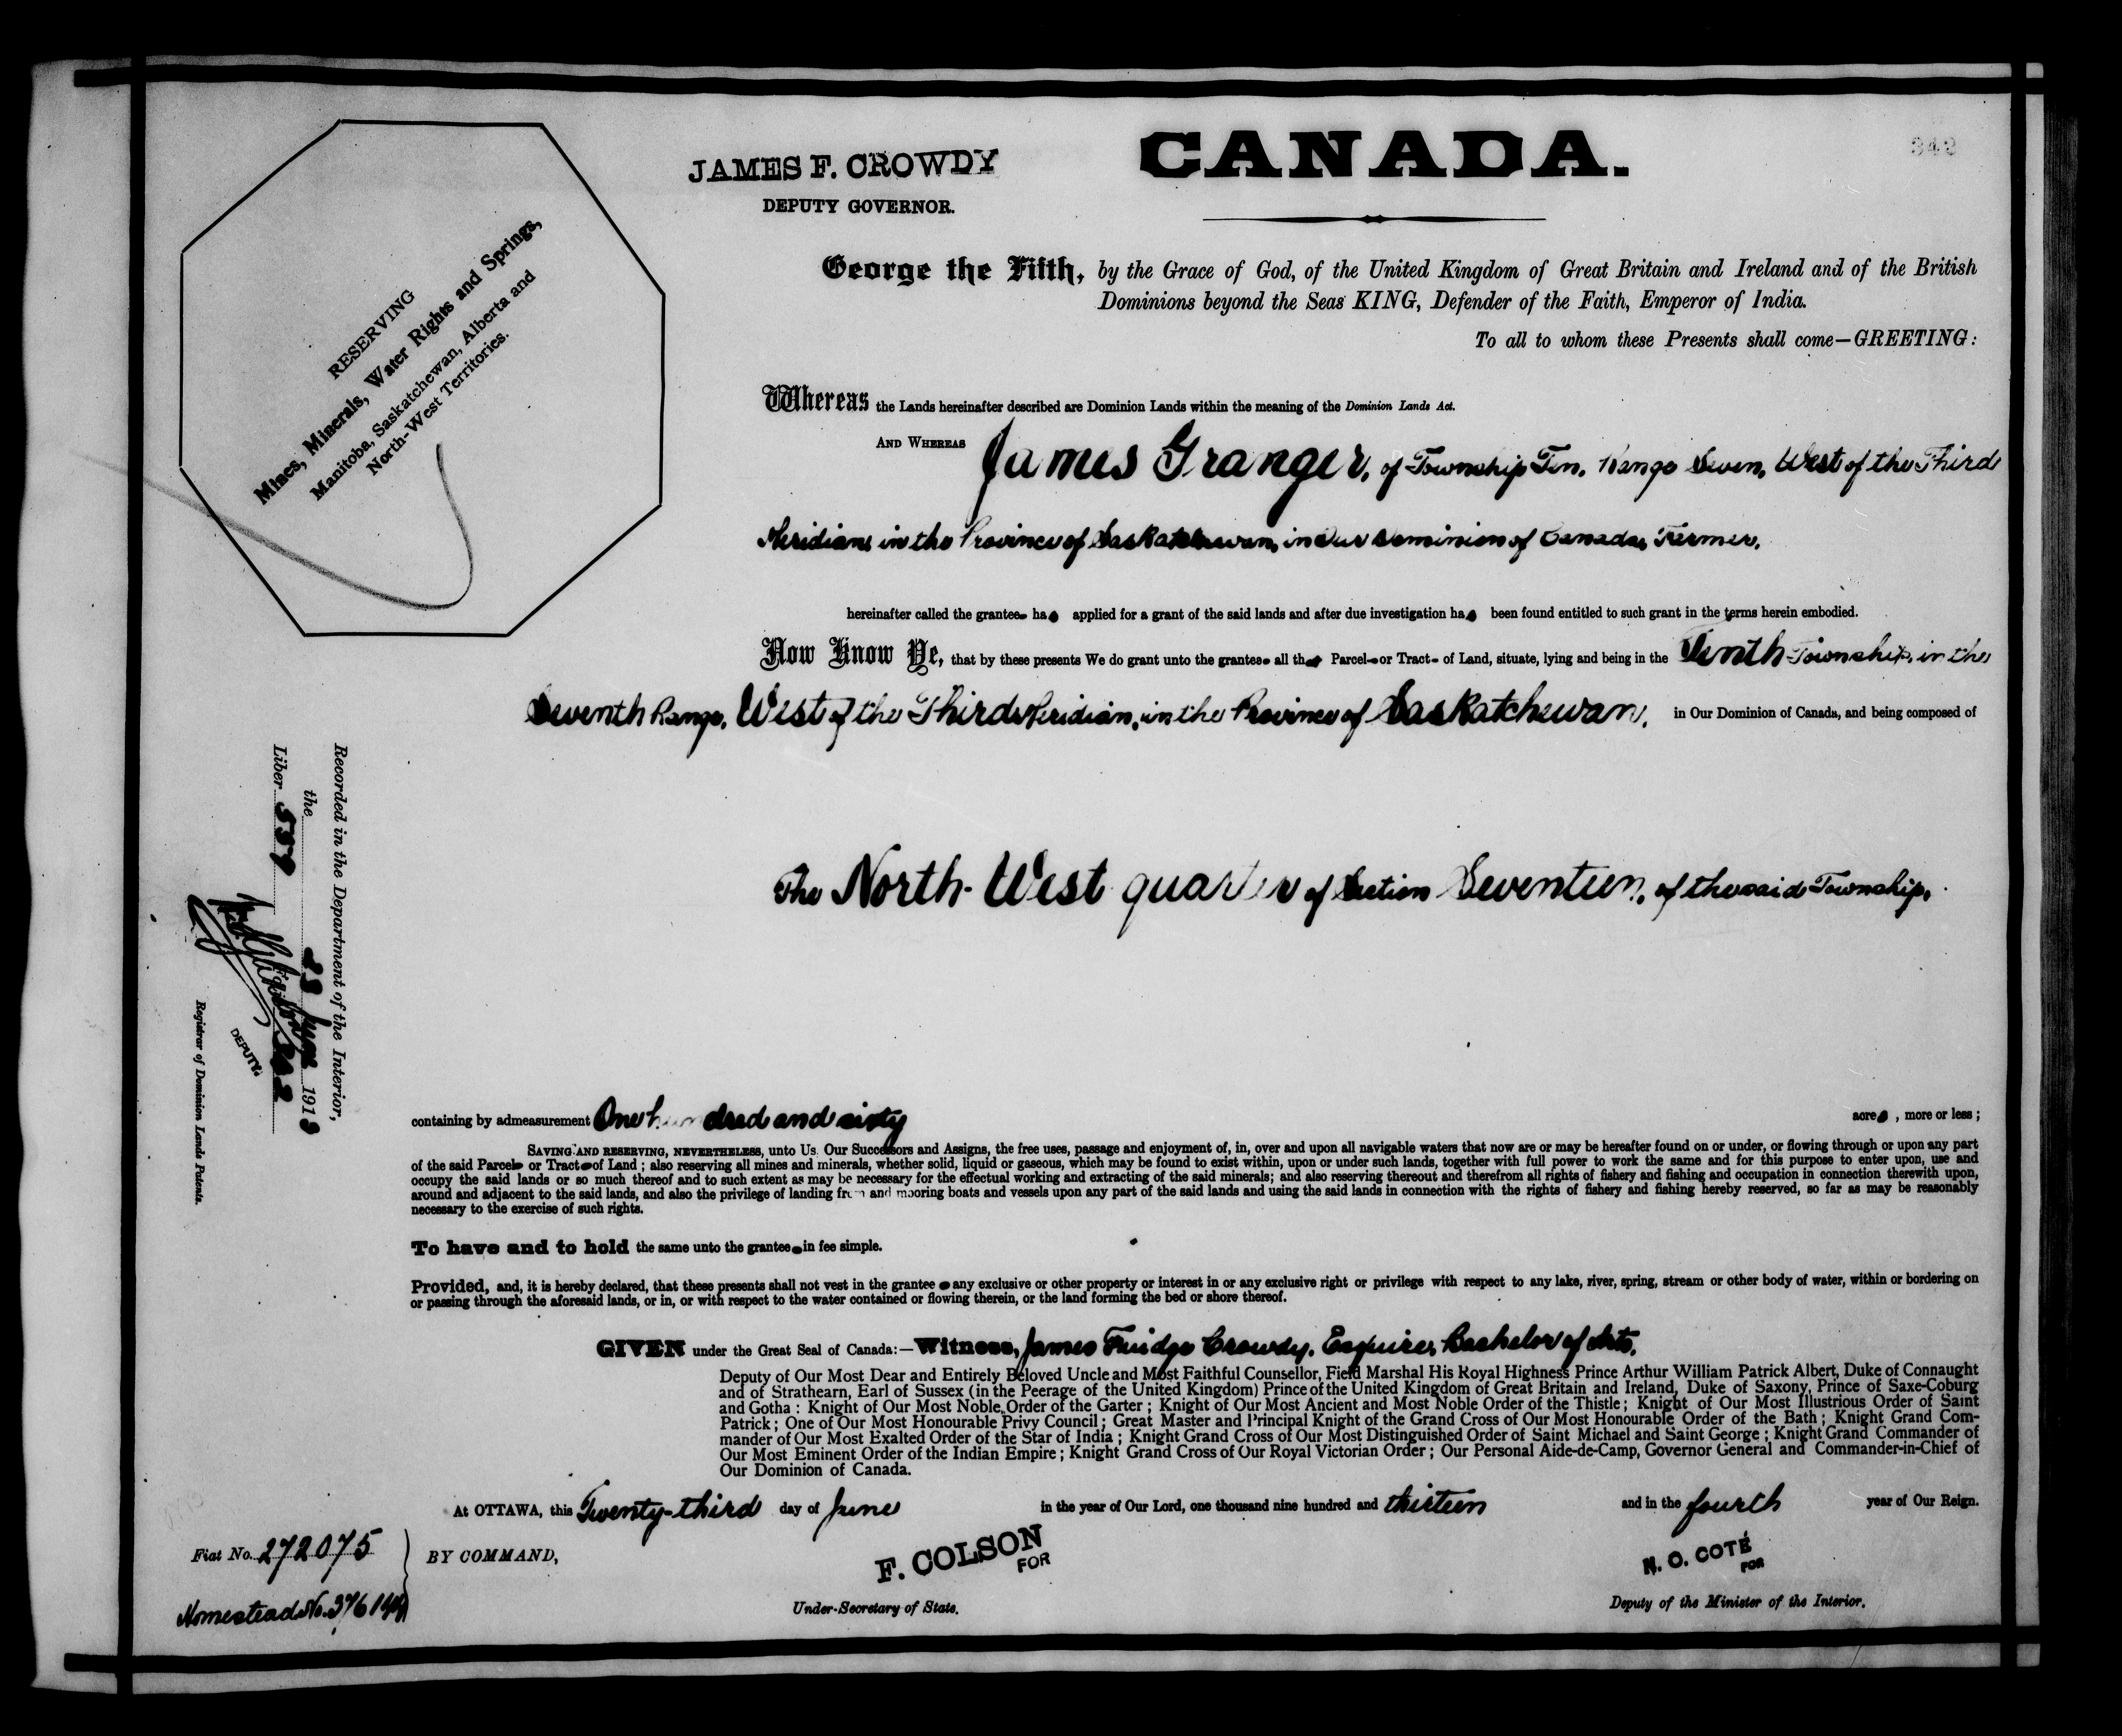 CANADA.
342
JAMES F. CROWDY
DEPUTY GOVERNOR.
RESERVING
Mines, Minerals, Water Rights and Springs,
Manitoba, Saskatchewan, Alberta and
North-West Territories.
George the Fifth, by the Grace of God, of the United Kingdom of Great Britain and Ireland and of the British
Dominions beyond the Seas KING, Defender of the Faith, Emperor of India.
To all to whom these Presents shall come—GREETING:
Whereas the Lands hereinafter described are Dominion Lands within the meaning of the Dominion Lands Act.
AND WHEREAS James Granger, of Township Ten, Range Seven, West of the Third
Meridian, in the Province of Saskatchewan, in Our Dominion of Canada, Farmer,
hereinafter called the grantee ha s applied for a grant of the said lands and after due investigation ha s been found entitled to such grant in the terms herein embodied.
Now Know Ye, that by these presents We do grant unto the grantee all that Parcel or Tract of Land, situate, lying and being in the Tenth Township, in the
Seventh Range, West of the Third Meridian, in the Province of Saskatchewan, in Our Dominion of Canada, and being composed of
The North-West quarter of Section Seventeen, of the said Township,
Recorded in the Department of the Interior,
the 28 June 1913
Liber 537 Folio 342
DEPUTY.
Registrar of Dominion Lands Patents.
containing by admeasurement One hundred and sixty acres, more or less;
SAVING AND RESERVING, NEVERTHELESS, unto Us Our Successors and Assigns, the free uses, passage and enjoyment of, in, over and upon all navigable waters that now are or may be hereafter found on or under, or flowing through or upon any part
of the said Parcel or Tract of Land; also reserving all mines and minerals, whether solid, liquid or gaseous, which may be found to exist within, upon or under such lands, together with full power to work the same and for this purpose to enter upon, use and
occupy the said lands or so much thereof and to such extent as may be necessary for the effectual working and extracting of the said minerals; and also reserving thereout and therefrom all rights of fishery and fishing and occupation in connection therewith upon,
around and adjacent to the said lands, and also the privilege of landing from and mooring boats and vessels upon any part of the said lands and using the said lands in connection with the rights of fishery and fishing hereby reserved, so far as may be reasonably
necessary to the exercise of such rights.
To have and to hold the same unto the grantee in fee simple.
Provided, and, it is hereby declared, that these presents shall not vest in the grantee any exclusive or other property or interest in or any exclusive right or privilege with respect to any lake, river, spring, stream or other body of water, within or bordering on
or passing through the aforesaid lands, or in, or with respect to the water contained or flowing therein, or the land forming the bed or shore thereof.
GIVEN under the Great Seal of Canada:—Witness, James Fuidge Crowdy, Esquire, Bachelor of Arts,
Deputy of Our Most Dear and Entirely Beloved Uncle and Most Faithful Counsellor, Field Marshal His Royal Highness Prince Arthur William Patrick Albert, Duke of Connaught
and of Strathearn, Earl of Sussex (in the Peerage of the United Kingdom) Prince of the United Kingdom of Great Britain and Ireland, Duke of Saxony, Prince of Saxe-Coburg
and Gotha: Knight of Our Most Noble Order of the Garter; Knight of Our Most Ancient and Most Noble Order of the Thistle; Knight of Our Most Illustrious Order of Saint
Patrick; One of Our Most Honourable Privy Council; Great Master and Principal Knight of the Grand Cross of Our Most Honourable Order of the Bath; Knight Grand Com-
mander of Our Most Exalted Order of the Star of India; Knight Grand Cross of Our Most Distinguished Order of Saint Michael and Saint George; Knight Grand Commander of
Our Most Eminent Order of the Indian Empire; Knight Grand Cross of Our Royal Victorian Order; Our Personal Aide-de-Camp, Governor General and Commander-in-Chief of
Our Dominion of Canada.
At OTTAWA, this Twenty-third day of June in the year of Our Lord, one thousand nine hundred and thirteen and in the fourth year of Our Reign.
Fiat No. 272075
BY COMMAND,
F. COLSON
FOR
Under-Secretary of State.
N. O. COTÉ
FOR
Deputy of the Minister of the Interior.
Homestead No.